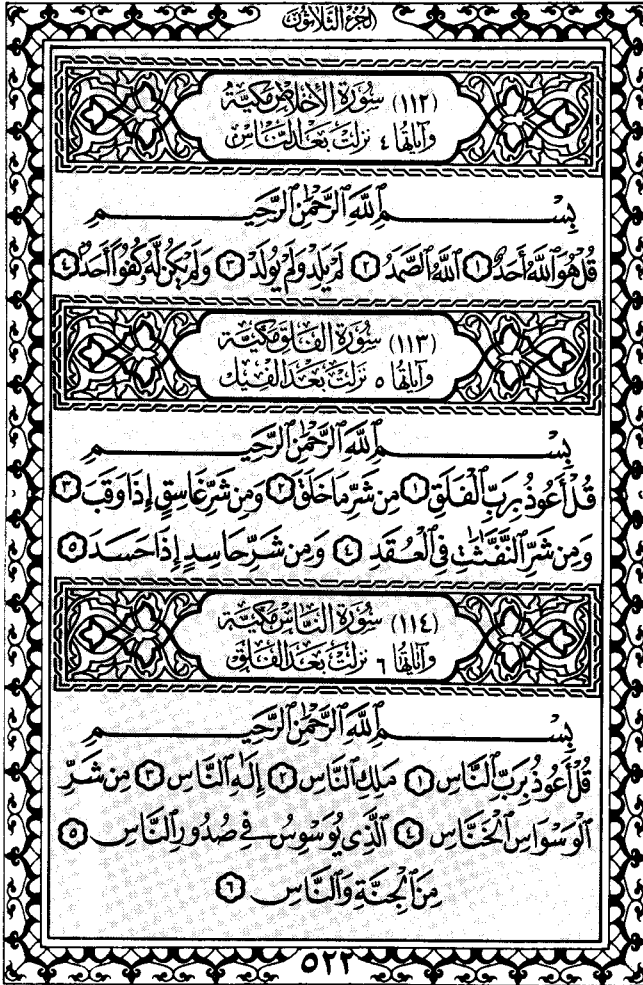 الجزء الثلاثون
(١١٢) سورة الإخلاص مكية
وآياتها ٤ نزلت بعد الناس
بِسْمِ ٱللَّهِ ٱلرَّحْمَٰنِ ٱلرَّحِيمِ
قُلْ هُوَ ٱللَّهُ أَحَدٌ ١ ٱللَّهُ ٱلصَّمَدُ ٢ لَمْ يَلِدْ وَلَمْ يُولَدْ ٣ وَلَمْ يَكُن لَّهُۥ كُفُوًا أَحَدٌۢ ٤
(١١٣) سورة الفلق مكية
وآياتها ٥ نزلت بعد الفيل
بِسْمِ ٱللَّهِ ٱلرَّحْمَٰنِ ٱلرَّحِيمِ
قُلْ أَعُوذُ بِرَبِّ ٱلْفَلَقِ ١ مِن شَرِّ مَا خَلَقَ ٢ وَمِن شَرِّ غَاسِقٍ إِذَا وَقَبَ ٣
وَمِن شَرِّ ٱلنَّفَّٰثَٰتِ فِي ٱلْعُقَدِ ٤ وَمِن شَرِّ حَاسِدٍ إِذَا حَسَدَ ٥
(١١٤) سورة الناس مكية
وآياتها ٦ نزلت بعد الفلق
بِسْمِ ٱللَّهِ ٱلرَّحْمَٰنِ ٱلرَّحِيمِ
قُلْ أَعُوذُ بِرَبِّ ٱلنَّاسِ ١ مَلِكِ ٱلنَّاسِ ٢ إِلَٰهِ ٱلنَّاسِ ٣ مِن شَرِّ
ٱلْوَسْوَاسِ ٱلْخَنَّاسِ ٤ ٱلَّذِي يُوَسْوِسُ فِي صُدُورِ ٱلنَّاسِ ٥
مِنَ ٱلْجِنَّةِ وَٱلنَّاسِ ٦
٥٢٢